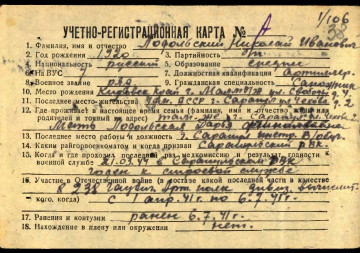 1/106
38
УЧЕТНО-РЕГИСТРАЦИОННАЯ КАРТА № А
1. Фамилия, имя и отчество Подольский Николай Иванович
2. Год рождения 1920 3. Партийность
4. Национальность русский 5. Образование среднее
6. На ВУС 7. Должностная квалификация артиллер.
8. Военное звание ряд. 9. Гражданская специальность
10. Место рождения Кировск край г. Малмыж ул.
11. Последнее место жительства Удм. АССР г. Сарапул
12. Где проживает в настоящее время семья (фамилия, имя и отчество жены,
родителей и точный их адрес) там-же г. Сарапул
Мать Подольская
13. Последнее место работы и должность г. Сарапул
14. Каким райгорвоенкоматом и когда призван Сарапульский РВК.
15. Когда и где проходил последний раз медкомиссию и результат, годности к
военной службе 21.03.47 в Сарапульском РВК
годен к строевой службе
16. Участие в Отечественной войне (в составе какой последней части в качестве
в 238 Гаубиц. Арт. полк вычислит.
кого, когда) с 1 апр. 41 г. по 6.7.41 г.
17. Ранения и контузии ранен 6.7.41 г.
18. Нахождение в плену или окружении нет.